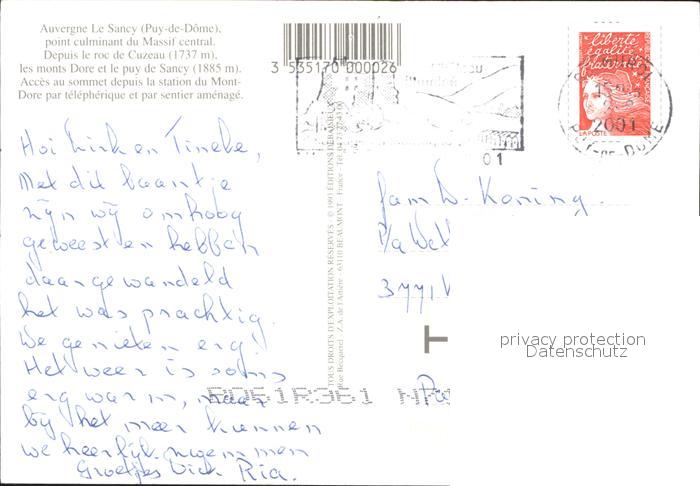 Auvergne Le Sancy (Puy-de-Dôme),
point culminant du Massif central.
Depuis le roc de Cuzeau (1737 m),
les monts Dore et le puy de Sancy (1885 m).
Accès au sommet depuis la station du Mont-
Dore par téléphérique et par sentier aménagé.
3 535170 000026
TOUS DROITS D'EXPLOITATION RÉSERVÉS - © 1993 ÉDITIONS DEBAISIEUX
Rue Becquerel - Z.A. de l'Artière - 63110 BEAUMONT - France - Tél.
liberté
égalité
fraternité
LA POSTE
2001
PUY-DE-DOME
01
Hoi Dirk en Tineke,
Met dit baantje
zijn wij omhoog
geweest en hebben
daar gewandeld
het was prachtig.
We genieten erg.
Het weer is soms
erg warm, maar
bij het meer kunnen
we heerlijk zwemmen
Groetjes Dick Ria.
fam D. Koning.
P/a
3771
T
privacy protection
Datenschutz